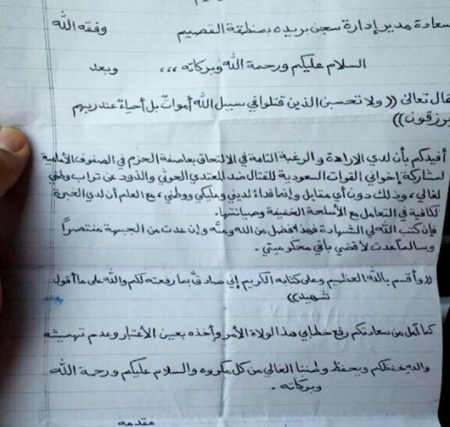 سعادة مدير إدارة سجن بريده بمنطقة القصيم وفقه الله
السلام عليكم ورحمة الله وبركاته ،،، وبعد
قال تعالى (( ولا تحسبن الذين قتلوا في سبيل الله أمواتً بل أحياءً عند ربهم
يرزقون))
أفيدكم بأن لدي الإرادة والرغبة التامة في الالتحاق بعاصفة الحزم في الصفوف الأمامية
لمشاركة إخواني القوات السعودية للقتال ضد المعتدي الحوثي والذود عن تراب وطني
الغالي، وذلك دون أي مقابل وإنما فداءً لديني ومليكي ووطني، مع العلم أن لدي الخبرة
الكافية في التعامل مع الأسلحة الخفيفة وصيانتها.
فإن كتب الله لي الشهادة فهذا فضل من الله ومنَّه وإن عدت من الجبهة منتصراً
وسالماً عدت لأقضي باقي محكوميتي.
((وأقسم بالله العظيم وعلى كتابه الكريم إني صادقً بما رفعته لكم والله على ما أقول
شهيد))
كما آمل من سعادتكم رفع خطابي هذا لولاة الأمر وأخذه بعين الأعتبار وعدم تهميشه
والله يحفظكم ويحفظ وطننا الغالي من كل مكروه والسلام عليكم ورحمة الله
وبركاته.
مقدمه